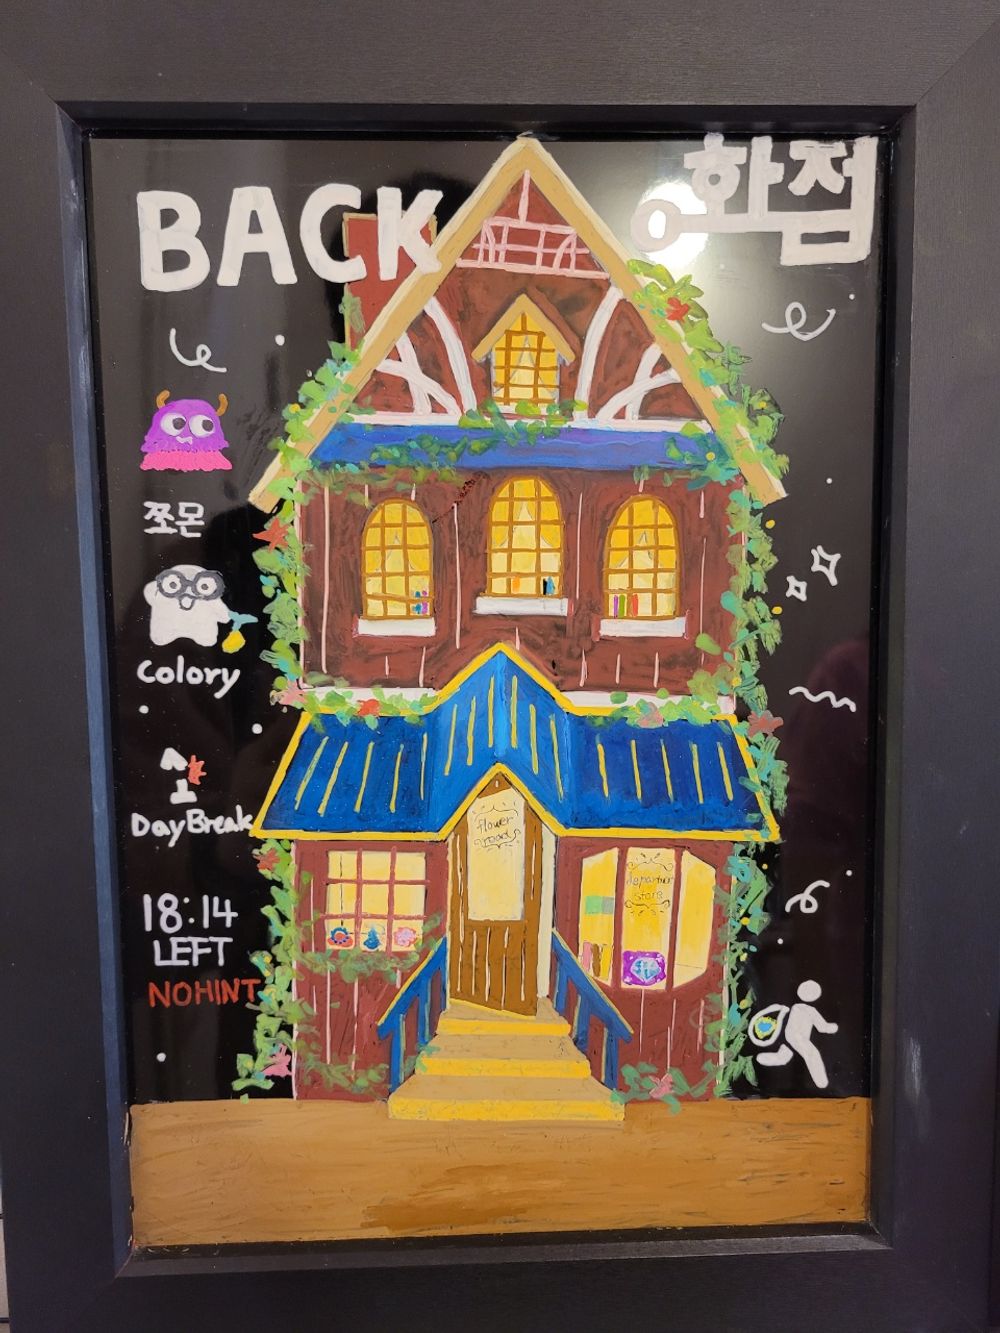 BACK
화점
쪼몬
Colory
DayBreak
18:14
LEFT
NOHINT
flower
road
department
store